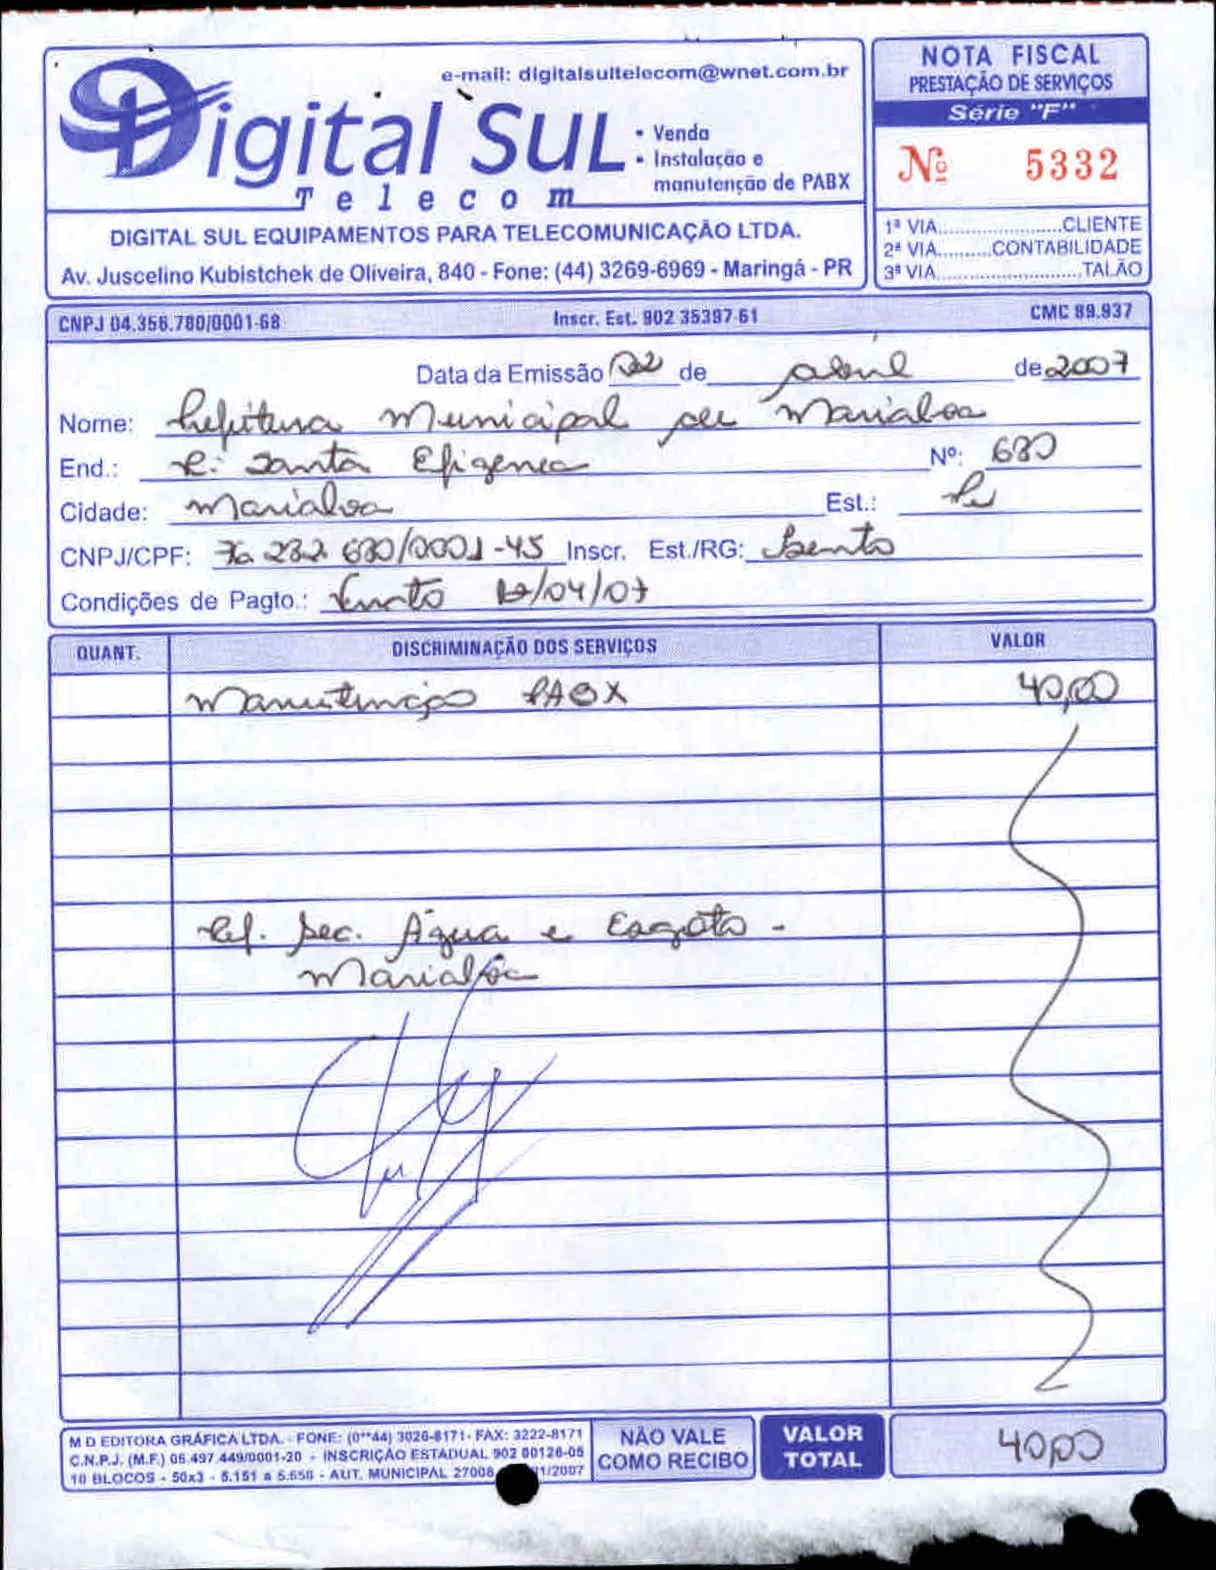 e-mail: digitalsultelecom@wnet.com.br
Digital SUL
Telecom
• Venda
• Instalação e
manutenção de PABX
DIGITAL SUL EQUIPAMENTOS PARA TELECOMUNICAÇÃO LTDA.
Av. Juscelino Kubistchek de Oliveira, 840 - Fone: (44) 3269-6969 - Maringá - PR
NOTA FISCAL
PRESTAÇÃO DE SERVIÇOS
Série "F"
Nº 5332
1ª VIA........................CLIENTE
2ª VIA..........CONTABILIDADE
3ª VIA............................TALÃO
CNPJ 04.356.780/0001-68 Inscr. Est. 902 35397-61 CMC 89.937
Data da Emissão 02 de abril de 2007
Nome: Prefeitura Municipal de Marialva
End.: R: Santa Efigenea Nº: 680
Cidade: Marialva Est.: Pr
CNPJ/CPF: 76 282 680/0001-45 Inscr. Est./RG: Isento
Condições de Pagto.: 12/04/07
QUANT. DISCRIMINAÇÃO DOS SERVIÇOS VALOR
Manutenção PABX 40,00
Ref. Sec. Água e Esgoto -
Marialva
M D EDITORA GRÁFICA LTDA. - FONE: (0**44) 3026-8171 - FAX: 3222-8171
C.N.P.J. (M.F.) 05.497.449/0001-20 - INSCRIÇÃO ESTADUAL 902 60126-05
10 BLOCOS - 50x3 - 5.151 a 5.650 - AUT. MUNICIPAL 27008 1/2007
NÃO VALE
COMO RECIBO
VALOR
TOTAL
40,00